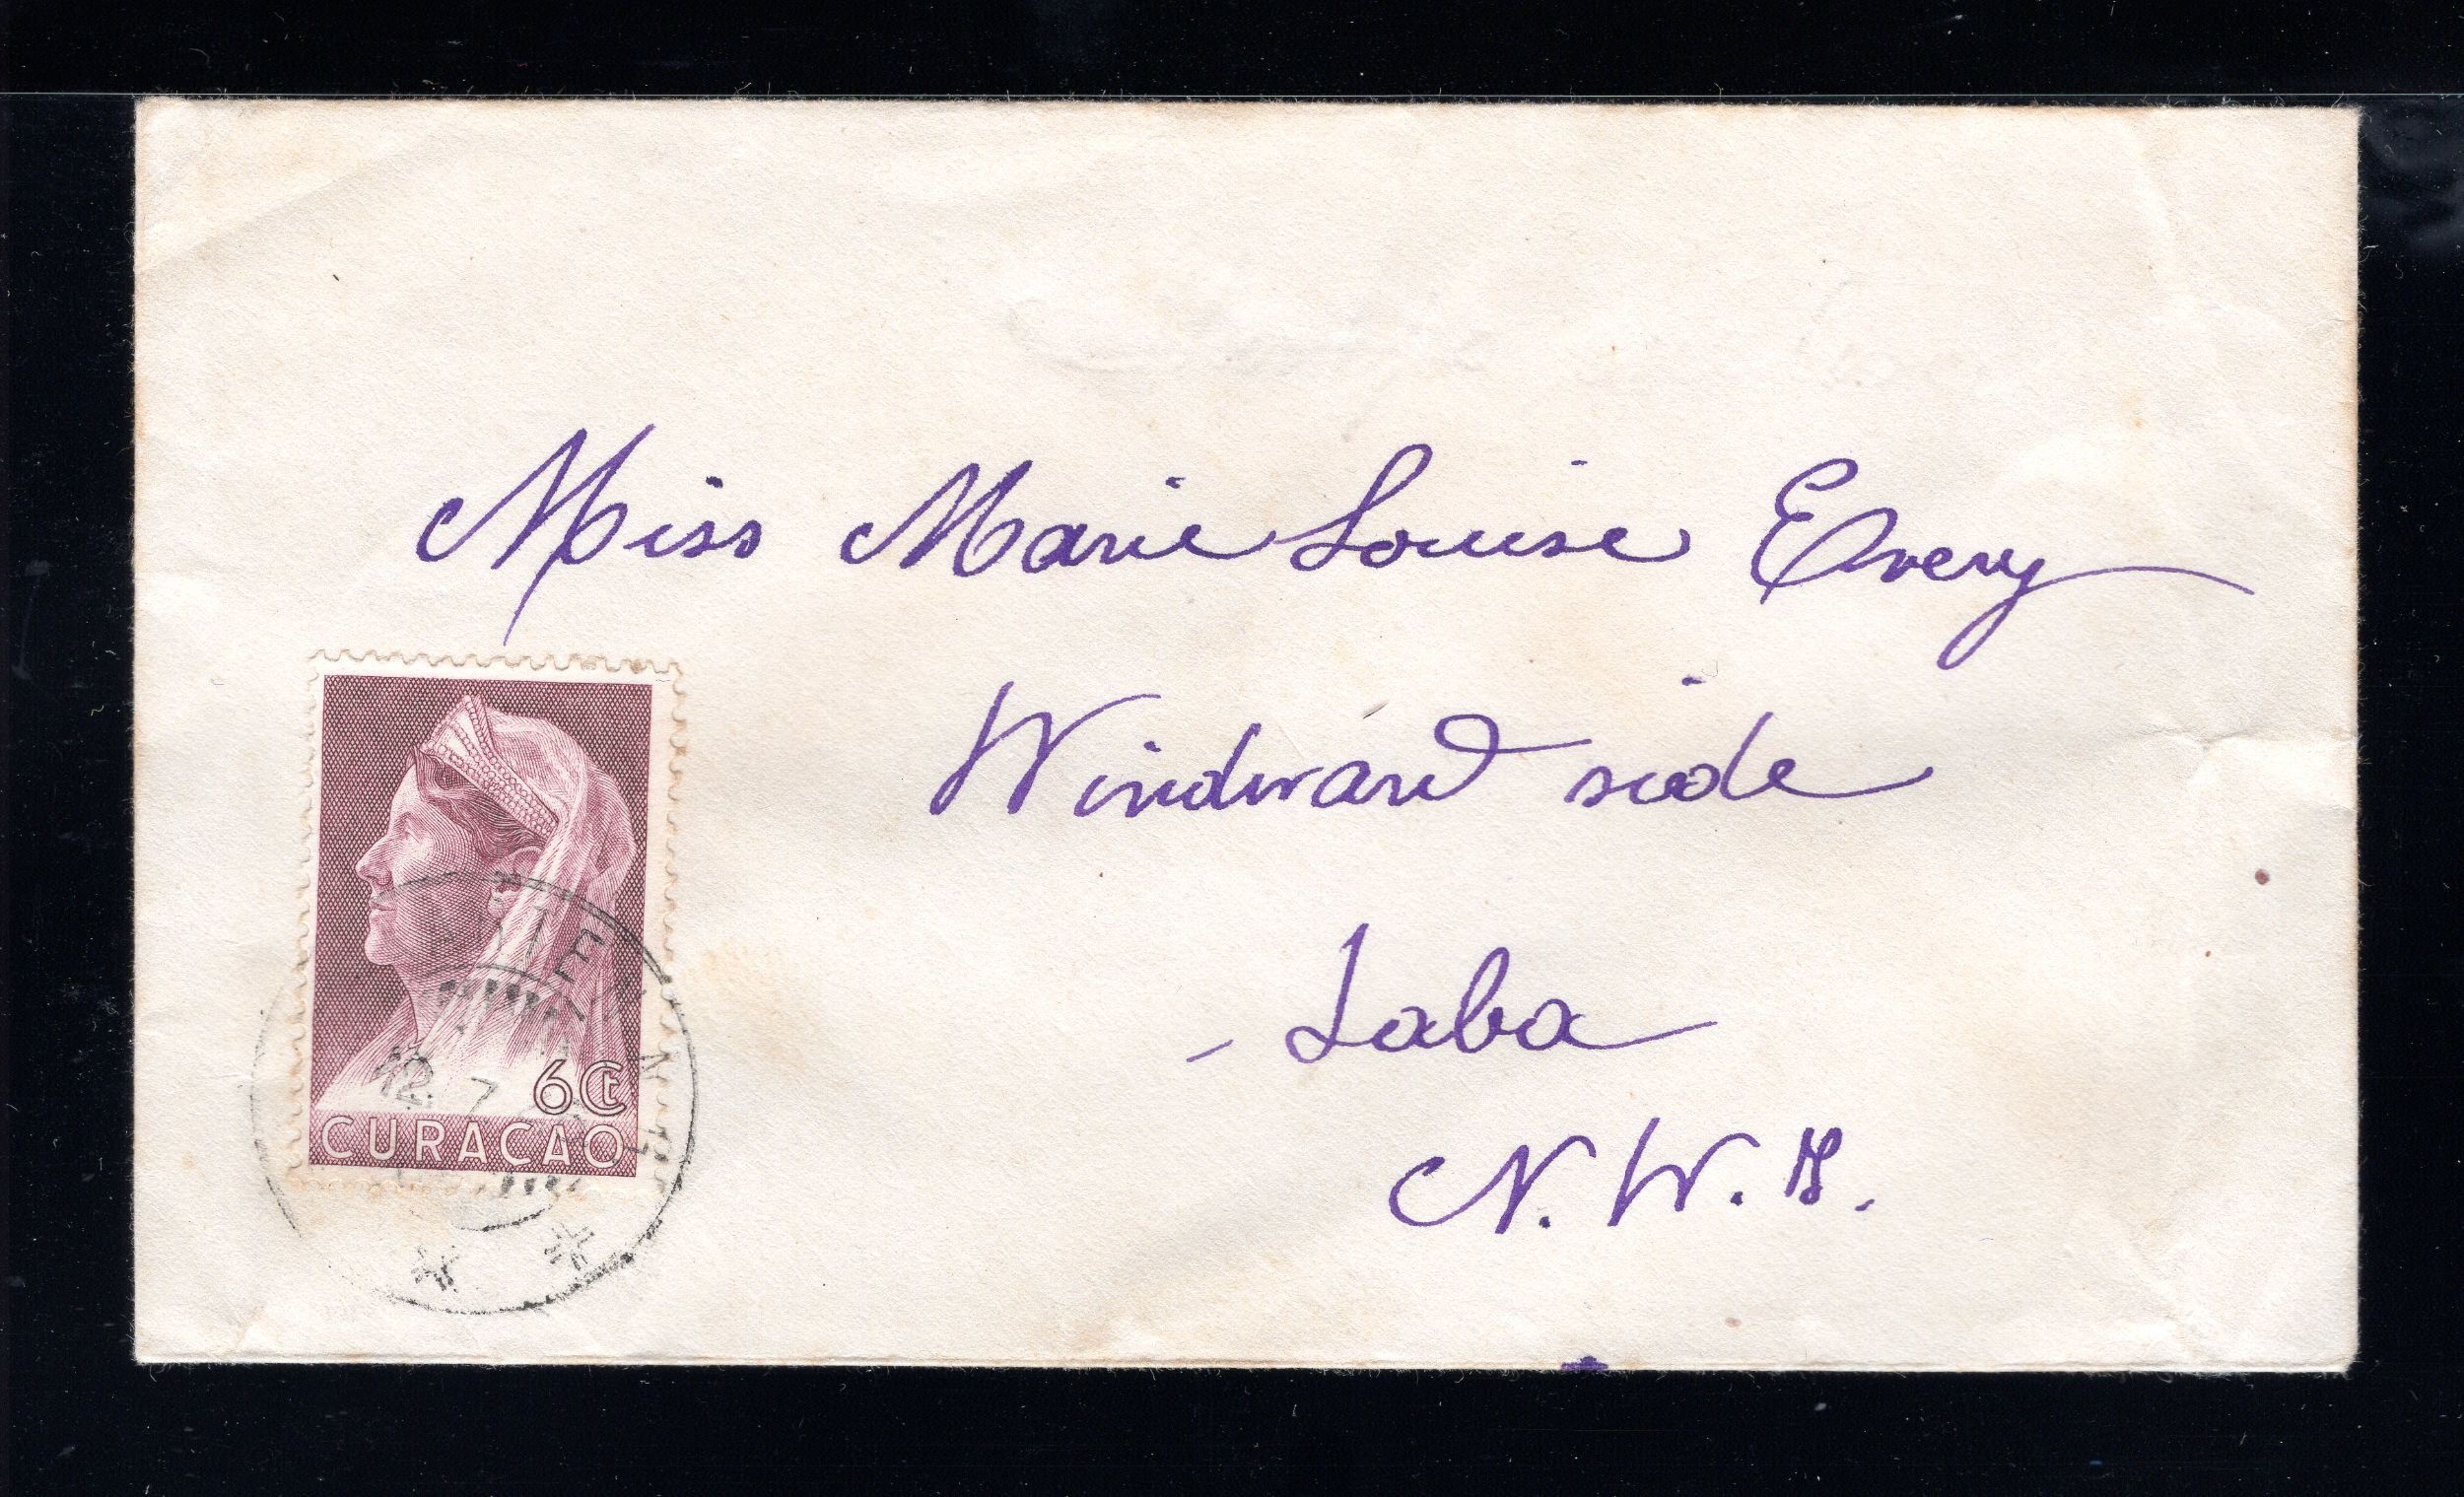 Miss Marie Louise Every
Windward side
- Saba
N.W.I.
6 Ct
CURAÇAO
12.7
* *